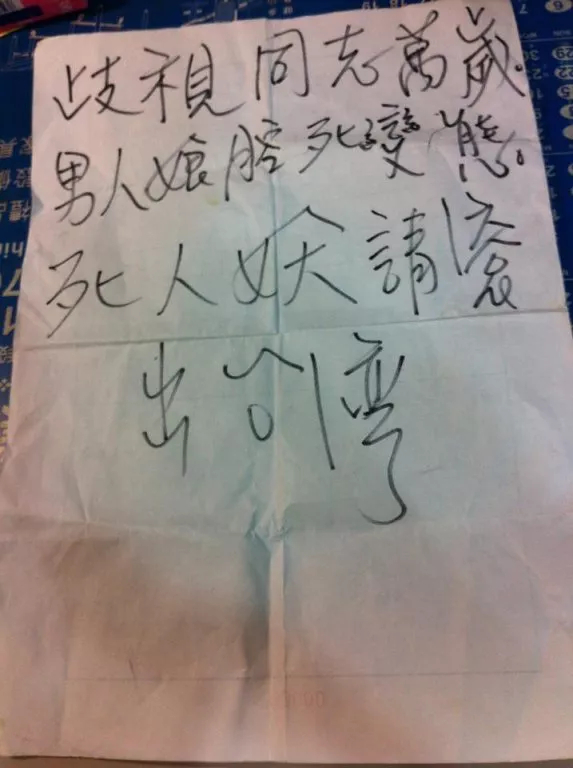 歧視同志萬歲。
男人娘腔死變態。
死人妖請滾
出台灣